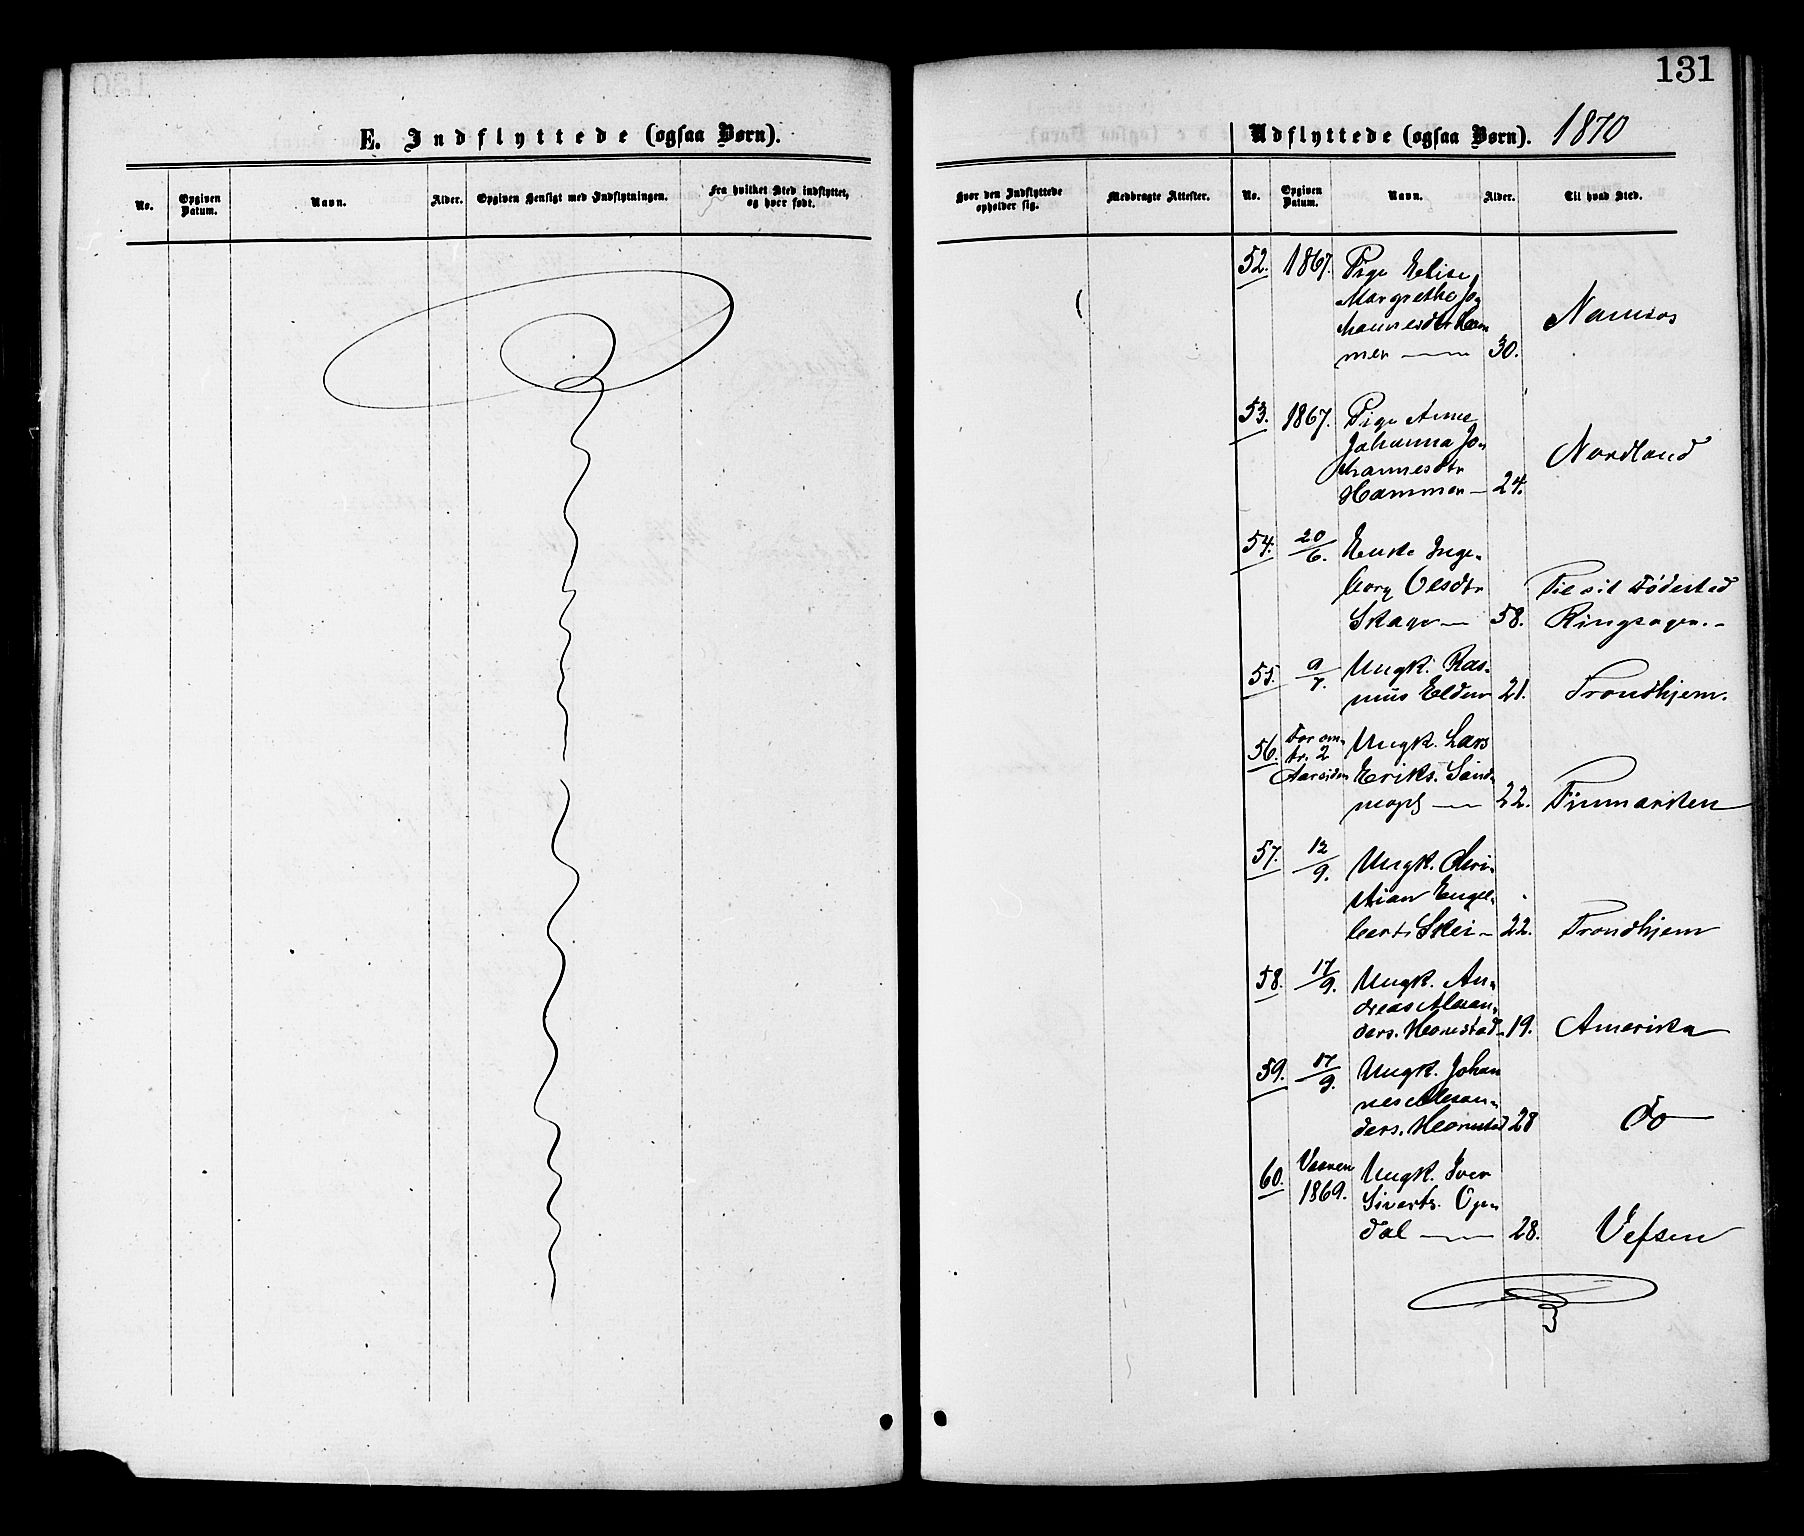 131
E. Indflyttede (ogsaa Børn).
No.
Opgiven Datum.
Navn.
Alder.
Opgiven Hensigt med Indflytningen.
Fra hvilket Sted indflyttet,
og hvor født.
Udflyttede (ogsaa Børn). 1870
Hvor den Indflyttede
opholder sig.
Medbragte Attester.
No.
Opgiven Datum.
Navn.
Alder.
Til hvad Sted.
52. 1867. Pige Elise
Margrethe Jo
hannesdtr Ham
mer 30. Namsos
53. 1867. Pige Anne
Johanna Jo
hannesdtr
Hammer 24. Nordland
54. 20/6. Enke Inge
borg Olsdtr
Skage 58. Til sit Fødested
Ringsager.
55. 9/7. Ungk. Ras
mus Elden 21. Trondhjem.
56. For om
tr. 2
Aar siden Ungk. Lars
Eriks. Sand
22. Finmarken
57. 12/9. Ungk. Chri
stian Engel
berts Skei 22. Trondhjem
58. 17/9. Ungk. An
dreas Alexan
ders. 19. Amerika
59. 17/9. Ungk. Johan
nes Alexan
ders. 28 do
60. Vaaren
1869. Ungk. Iver
Siverts. Op
dal 28. Vefsen